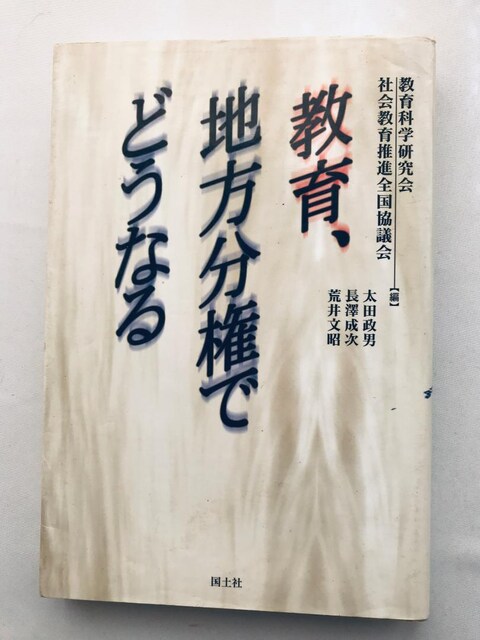 教育科学研究会
社会教育推進全国協議会
【編】
太田政男
長澤成次
荒井文昭
教育、
地方分権で
どうなる
国土社